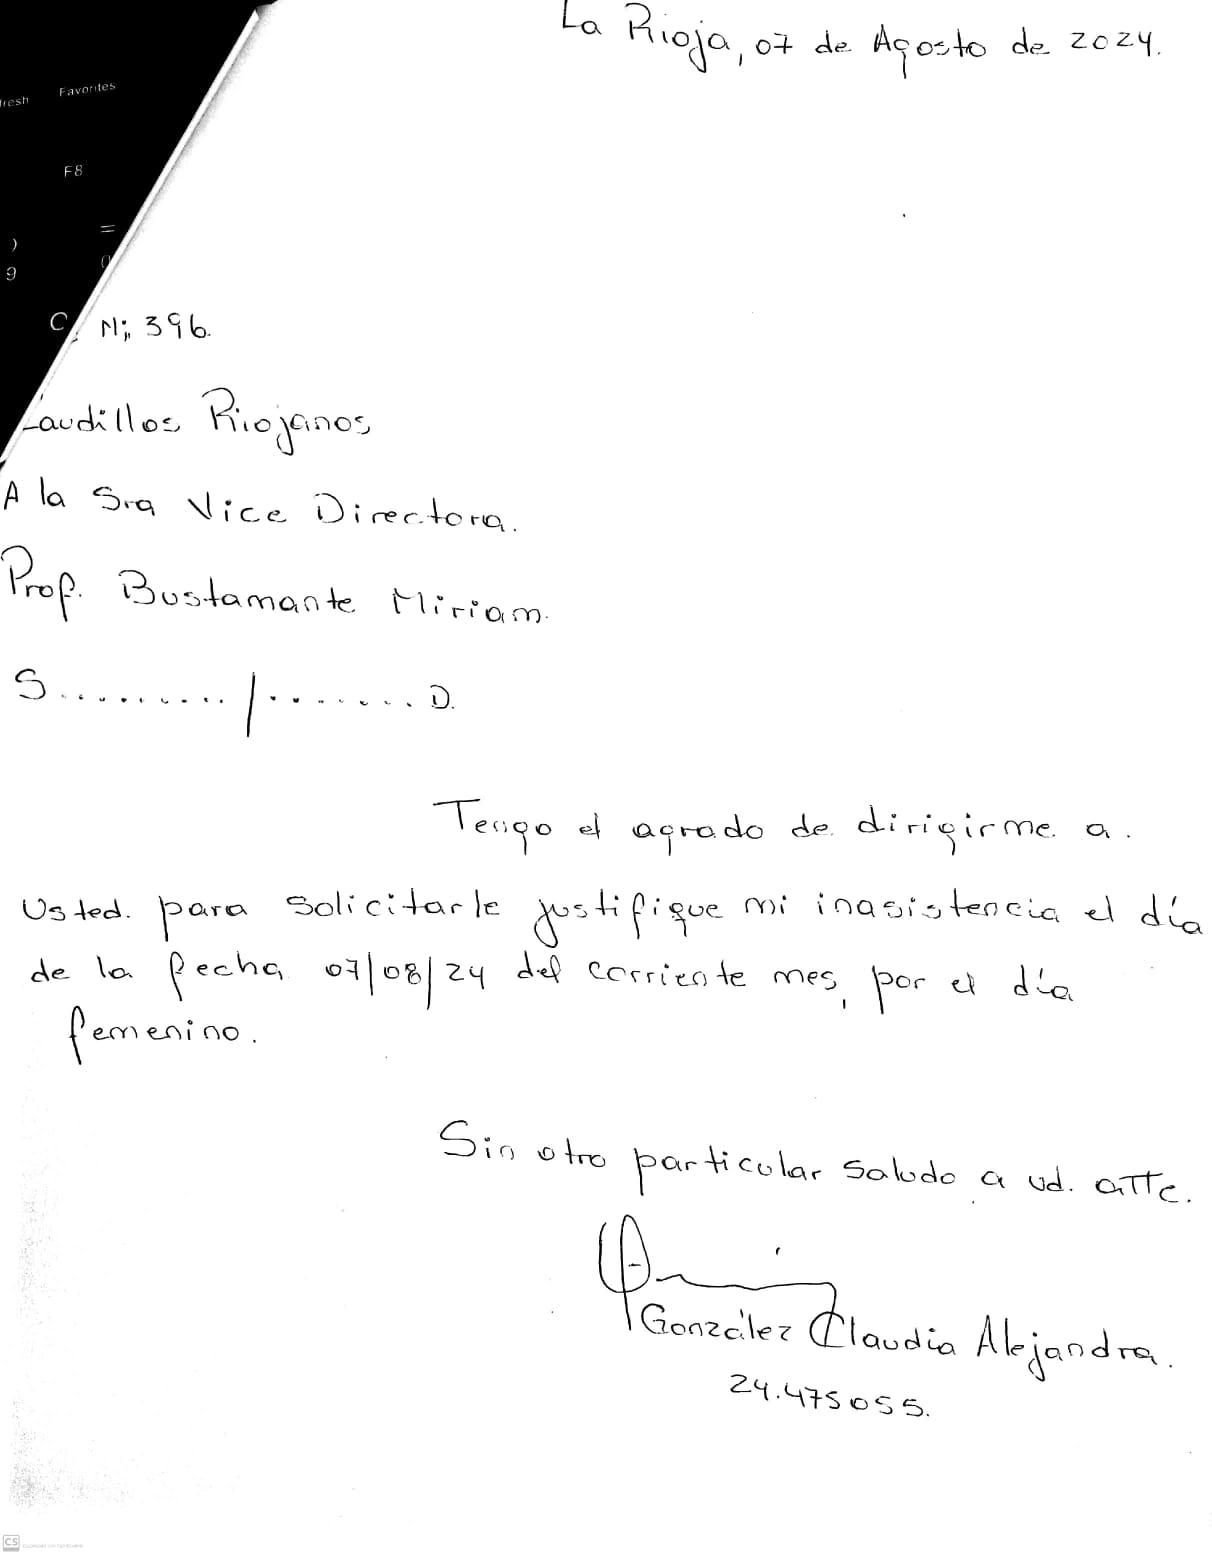 La Rioja, 07 de Agosto de 2024.
Favorites
fresh
F8
=
)
9
0
C N; 396.
Caudillos Riojanos
A la Sra Vice Directora.
Prof. Bustamante Miriam.
S........../........D.
Tengo el agrado de dirigirme a.
Usted. para solicitarle justifique mi inasistencia el día
de la fecha 07/08/24 del corriente mes, por el día
femenino.
Sin otro particular saludo a ud. atte.
González Claudia Alejandra.
24.475055.
CS